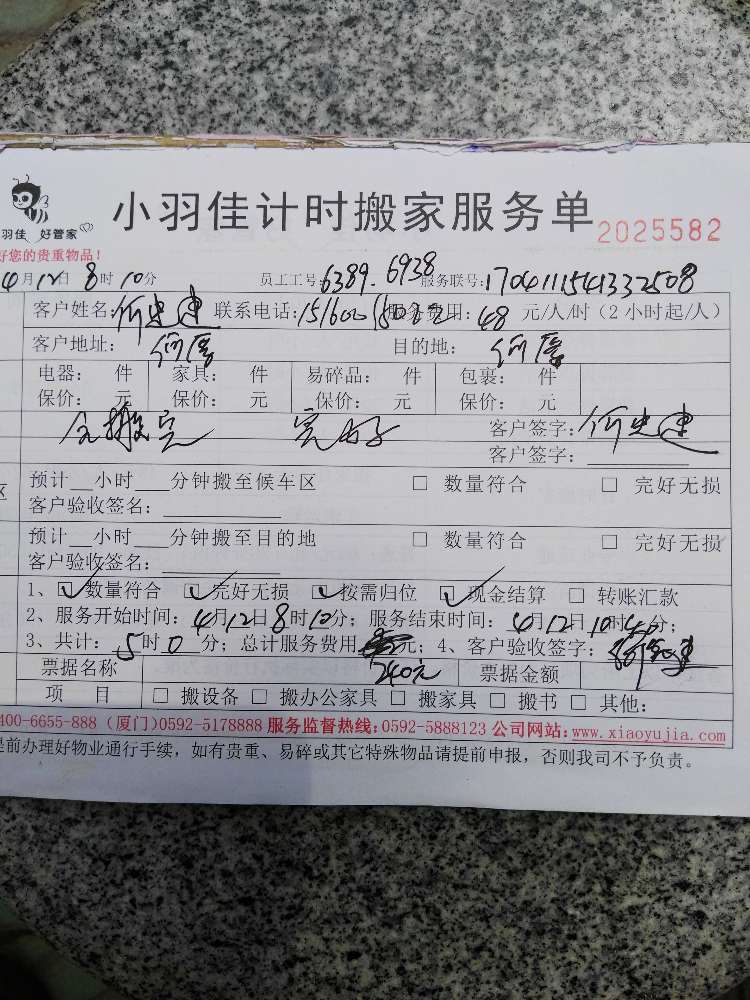 小羽佳计时搬家服务单 2025582
羽佳 好管家
好您的贵重物品！
4月12日8时10分 员工工号:6389.6938 服务联号:1704111541332508
客户姓名: 联系电话: 服务费用: 48 元/人/时（2小时起/人）
客户地址： 何厝 目的地： 何厝
电器： 件 家具： 件 易碎品： 件 包裹： 件
保价： 元 保价： 元 保价： 元 保价： 元
全搬完 完好 客户签字：
客户签字：
预计__小时___分钟搬至候车区 □ 数量符合 □ 完好无损
区 客户验收签名：
预计__小时___分钟搬至目的地 □ 数量符合 □ 完好无损
客户验收签名：
1、☑数量符合 ☑完好无损 ☑按需归位 ☑现金结算 □ 转账汇款
2、服务开始时间：4月12日8时10分；服务结束时间：4月12日10时40分；
3、共计：5时0分；总计服务费用 元；4、客户验收签字：
240元
票据名称 票据金额
项 目 □ 搬设备 □ 搬办公家具 □ 搬家具 □ 搬书 □ 其他:
400-6655-888 (厦门)0592-5178888 服务监督热线:0592-5888123 公司网站:www.xiaoyujia.com
提前办理好物业通行手续，如有贵重、易碎或其它特殊物品请提前申报，否则我司不予负责。